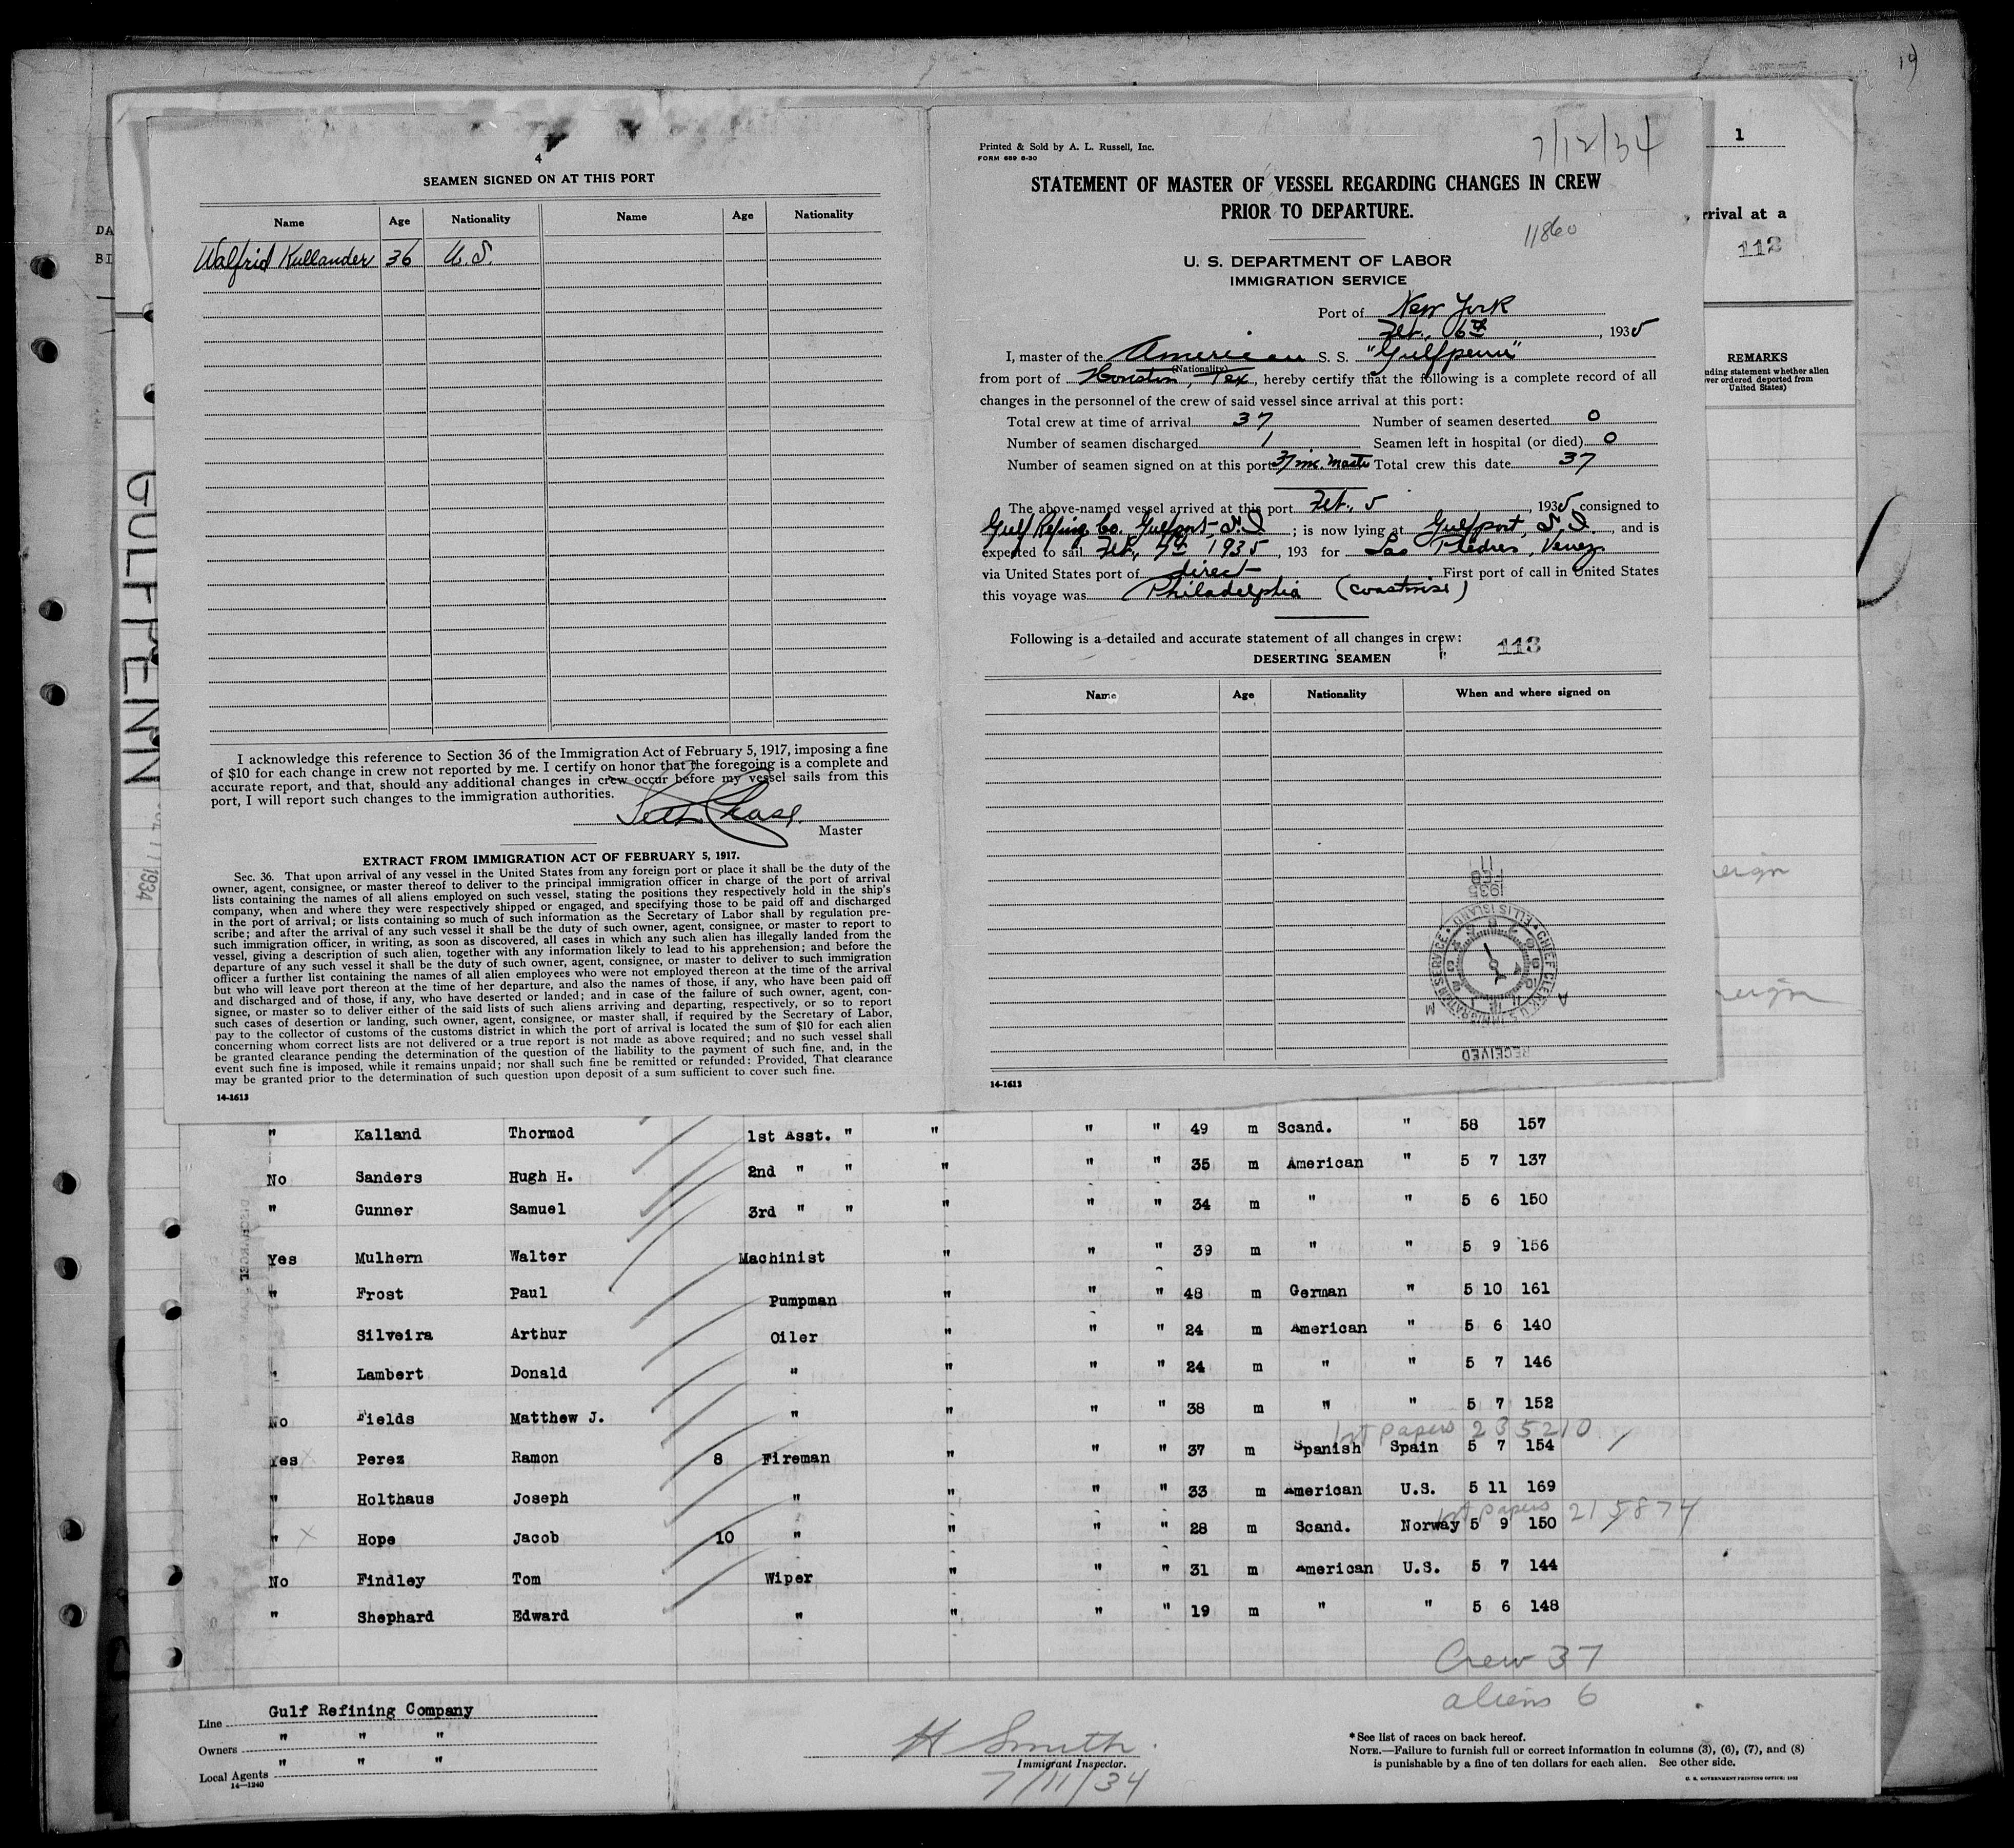 19
4
SEAMEN SIGNED ON AT THIS PORT
Name Age Nationality Name Age Nationality
Walfrid Kullander 36 U.S.
I acknowledge this reference to Section 36 of the Immigration Act of February 5, 1917, imposing a fine
of $10 for each change in crew not reported by me. I certify on honor that the foregoing is a complete and
accurate report, and that, should any additional changes in crew occur before my vessel sails from this
port, I will report such changes to the immigration authorities.
Seth Chase.
Master
EXTRACT FROM IMMIGRATION ACT OF FEBRUARY 5, 1917.
Sec. 36. That upon arrival of any vessel in the United States from any foreign port or place it shall be the duty of the
owner, agent, consignee, or master thereof to deliver to the principal immigration officer in charge of the port of arrival
lists containing the names of all aliens employed on such vessel, stating the positions they respectively hold in the ship's
company, when and where they were respectively shipped or engaged, and specifying those to be paid off and discharged
in the port of arrival; or lists containing so much of such information as the Secretary of Labor shall by regulation pre-
scribe; and after the arrival of any such vessel it shall be the duty of such owner, agent, consignee, or master to report to
such immigration officer, in writing, as soon as discovered, all cases in which any such alien has illegally landed from the
vessel, giving a description of such alien, together with any information likely to lead to his apprehension; and before the
departure of any such vessel it shall be the duty of such owner, agent, consignee, or master to deliver to such immigration
officer a further list containing the names of all alien employees who were not employed thereon at the time of the arrival
but who will leave port thereon at the time of her departure, and also the names of those, if any, who have been paid off
and discharged and of those, if any, who have deserted or landed; and in case of the failure of such owner, agent, con-
signee, or master so to deliver either of the said lists of such aliens arriving and departing, respectively, or so to report
such cases of desertion or landing, such owner, agent, consignee, or master shall, if required by the Secretary of Labor,
pay to the collector of customs of the customs district in which the port of arrival is located the sum of $10 for each alien
concerning whom correct lists are not delivered or a true report is not made as above required; and no such vessel shall
be granted clearance pending the determination of the question of the liability to the payment of such fine, and, in the
event such fine is imposed, while it remains unpaid; nor shall such fine be remitted or refunded: Provided, That clearance
may be granted prior to the determination of such question upon deposit of a sum sufficient to cover such fine.
14-1613
Printed & Sold by A. L. Russell, Inc.
FORM 689 6-30
7/12/34
STATEMENT OF MASTER OF VESSEL REGARDING CHANGES IN CREW
PRIOR TO DEPARTURE.
11860
U. S. DEPARTMENT OF LABOR
IMMIGRATION SERVICE
Port of New York
Feb. 6th, 1935
I, master of the American S. S. "Gulfpenn"
(Nationality)
from port of Houston, Tex, hereby certify that the following is a complete record of all
changes in the personnel of the crew of said vessel since arrival at this port:
Total crew at time of arrival 37 Number of seamen deserted 0
Number of seamen discharged 1 Seamen left in hospital (or died) 0
Number of seamen signed on at this port 37 inc. Master Total crew this date 37
The above-named vessel arrived at this port Feb. 5, 1935 consigned to
Gulf Refing Co. Gulfport, S.I.; is now lying at Gulfport, S.I., and is
expected to sail Feb. 7th 1935, 193 for Las Piedres, Venez
via United States port of direct First port of call in United States
this voyage was Philadelphia (coastwise)
Following is a detailed and accurate statement of all changes in crew:
113
DESERTING SEAMEN
Name Age Nationality When and where signed on
1935 FEB 11
CHIEF CLERK U.S. IMMIGRATION SERVICE ELLIS ISLAND
A M
RECEIVED
14-1613
1
rrival at a
112
REMARKS
uding statement whether alien
ver ordered deported from
United States)
eign
reign
DA
BI
GULFPENN
1934
" Kalland Thormod 1st Asst. " " " " 49 m Scand. " 58 157
No Sanders Hugh H. 2nd " " " " " 35 m American " 5 7 137
" Gunner Samuel 3rd " " " " " 34 m " " 5 6 150
Yes Mulhern Walter Machinist " " " 39 m " " 5 9 156
" Frost Paul Pumpman " " " 48 m German " 5 10 161
Silveira Arthur Oiler " " " 24 m American " 5 6 140
" Lambert Donald " " " " 24 m " " 5 7 146
No Fields Matthew J. " " " " 38 m " " 5 7 152
1st papers 235210
Yes Perez Ramon 8 Fireman " " " 37 m Spanish Spain 5 7 154
" Holthaus Joseph " " " " 33 m American U.S. 5 11 169
1st papers 215874
" Hope Jacob 10 " " " " 28 m Scand. Norway 5 9 150
No Findley Tom Wiper " " " 31 m American U.S. 5 7 144
" Shephard Edward " " " " 19 m " " 5 6 148
Crew 37
aliens 6
Line Gulf Refining Company
Owners " " "
Local Agents " " "
14-1240
H Smith
Immigrant Inspector.
7/11/34
*See list of races on back hereof.
NOTE.—Failure to furnish full or correct information in columns (3), (6), (7), and (8)
is punishable by a fine of ten dollars for each alien. See other side.
U. S. GOVERNMENT PRINTING OFFICE: 1933